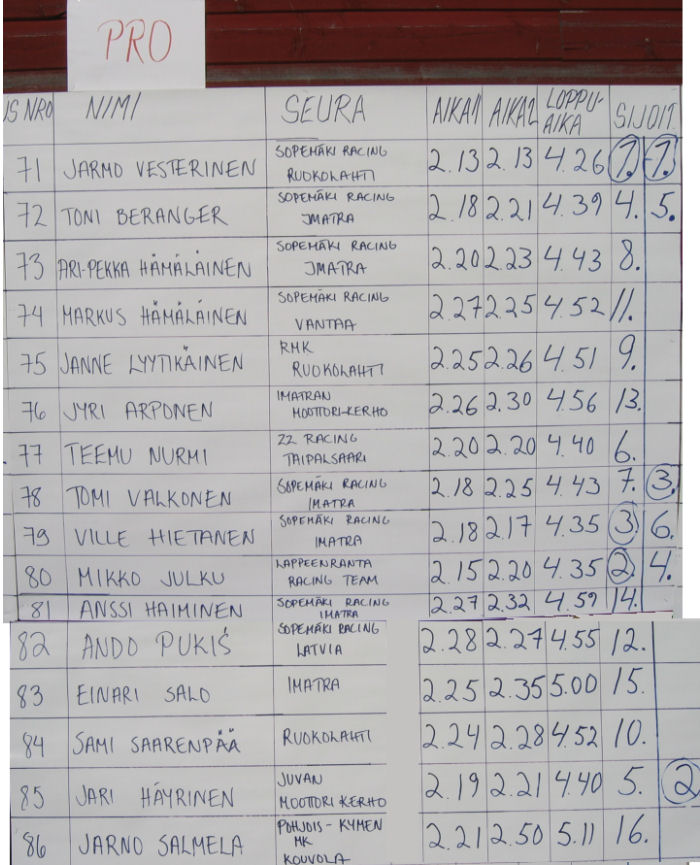 PRO
US NRO NIMI SEURA AIKA1 AIKA2 LOPPU-AIKA SIJOIT.
71 JARMO VESTERINEN SOPEMÄKI RACING RUOKOLAHTI 2.13 2.13 4.26 1. 1.
72 TONI BERANGER SOPEMÄKI RACING IMATRA 2.18 2.21 4.39 4. 5.
73 ARI-PEKKA HÄMÄLÄINEN SOPEMÄKI RACING IMATRA 2.20 2.23 4.43 8.
74 MARKUS HÄMÄLÄINEN SOPEMÄKI RACING VANTAA 2.27 2.25 4.52 11.
75 JANNE LYYTIKÄINEN RMK RUOKOLAHTI 2.25 2.26 4.51 9.
76 JYRI ARPONEN IMATRAN MOOTTORI-KERHO 2.26 2.30 4.56 13.
77 TEEMU NURMI ZZ RACING TAIPALSAARI 2.20 2.20 4.40 6.
78 TOMI VALKONEN SOPEMÄKI RACING IMATRA 2.18 2.25 4.43 7. 3.
79 VILLE HIETANEN SOPEMÄKI RACING IMATRA 2.18 2.17 4.35 3. 6.
80 MIKKO JULKU LAPPEENRANTA RACING TEAM 2.15 2.20 4.35 2. 4.
81 ANSSI HAIMINEN SOPEMÄKI RACING IMATRA 2.27 2.32 4.59 14.
82 ANDO PUKIŠ SOPEMÄKI RACING LATVIA 2.28 2.27 4.55 12.
83 EINARI SALO IMATRA 2.25 2.35 5.00 15.
84 SAMI SAARENPÄÄ RUOKOLAHTI 2.24 2.28 4.52 10.
85 JARI HÄYRINEN JUVAN MOOTTORI KERHO 2.19 2.21 4.40 5. 2
86 JARNO SALMELA POHJOIS-KYMEN MK KOUVOLA 2.21 2.50 5.11 16.